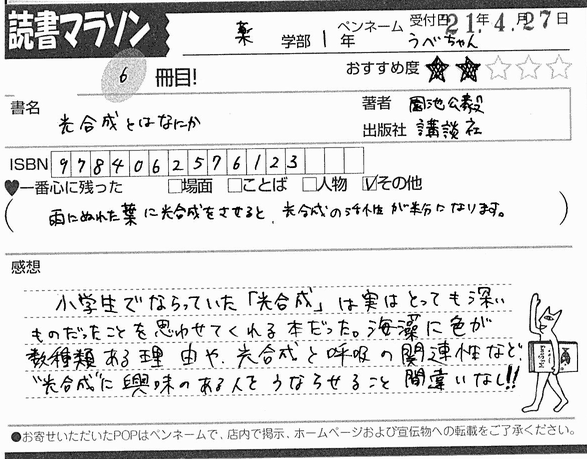 読書マラソン
薬 学部 1 年
ペンネーム うべちゃん
受付日 21年4月27日
6 冊目!
おすすめ度 ★★☆☆☆
書名 光合成とはなにか
著者 園池公毅
出版社 講談社
ISBN 9784062576123
♥一番心に残った □場面 □ことば □人物 ☑その他
(雨にぬれた葉に光合成をさせると、光合成の活性が半分になります。)
感想
小学生でならっていた「光合成」は実はとっても深い
ものだったことを思わせてくれる本だった。海藻に色が
数種類ある理由や、光合成と呼吸の関連性など
"光合成"に興味のある人をうならせること間違いなし!!
●お寄せいただいたPOPはペンネームで、店内で掲示、ホームページおよび宣伝物への転載をご了承ください。